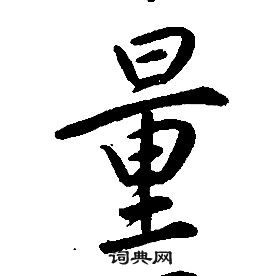 量
词典网